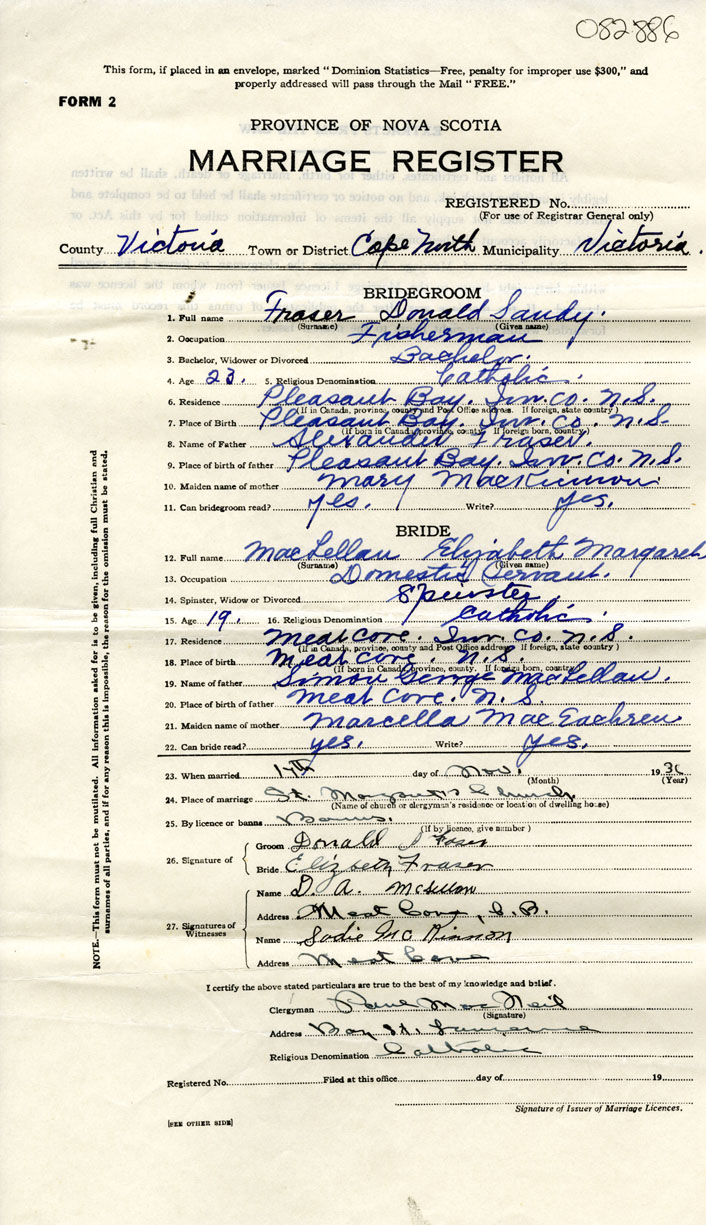 082886
This form, if placed in an envelope, marked "Dominion Statistics—Free, penalty for improper use $300," and
properly addressed will pass through the Mail "FREE."
FORM 2
PROVINCE OF NOVA SCOTIA
MARRIAGE REGISTER
REGISTERED No.
(For use of Registrar General only)
County Victoria Town or District Cape North Municipality Victoria.
BRIDEGROOM
1. Full name Fraser Donald Sandy.
(Surname) (Given name)
2. Occupation Fisherman
3. Bachelor, Widower or Divorced Bachelor.
4. Age 23. 5. Religious Denomination Catholic.
6. Residence Pleasant Bay. Inv. Co. N.S.
(If in Canada, province, county and Post Office address. If foreign, state country)
7. Place of Birth Pleasant Bay. Inv. Co. N.S.
(If born in Canada, province, county. If foreign born, country)
8. Name of Father Alexander Fraser.
9. Place of birth of father Pleasant Bay. Inv. Co. N.S.
10. Maiden name of mother Mary MacKinnon
11. Can bridegroom read? yes. Write? yes.
BRIDE
12. Full name MacLellan Elizabeth Margaret
(Surname) (Given name)
13. Occupation Domestic Servant.
14. Spinster, Widow or Divorced Spinster
15. Age 19. 16. Religious Denomination Catholic.
17. Residence Meat Cove. Inv. Co. N.S.
(If in Canada, province, county and Post Office address If foreign, state country)
18. Place of birth Meat Cove. N.S.
(If born in Canada, province, county. If foreign born, country)
19. Name of father Simon George MacLellan.
20. Place of birth of father Meat Cove. N.S.
21. Maiden name of mother Marcella MacEachren
22. Can bride read? yes. Write? yes.
23. When married 17th day of Nov. 1936
(Month) (Year)
24. Place of marriage St. Margaret's Church
(Name of church or clergyman's residence or location of dwelling house)
25. By licence or banns Banns.
(If by licence, give number)
26. Signature of Groom Donald J Fraser
Bride Elizbeth Fraser
27. Signatures of Witnesses Name D. A. McLellan
Address Meat Cove, C.B.
Name Sadie McKinnon
Address Meat Cove
I certify the above stated particulars are true to the best of my knowledge and belief.
Clergyman MacNeil
(Signature)
Address Bay St. Lawrence
Religious Denomination Catholic
Registered No. Filed at this office day of 19
Signature of Issuer of Marriage Licences.
[SEE OTHER SIDE]
NOTE.—This form must not be mutilated. All information asked for is to be given, including full Christian and
surnames of all parties, and if for any reason this is impossible, the reason for the omission must be stated.